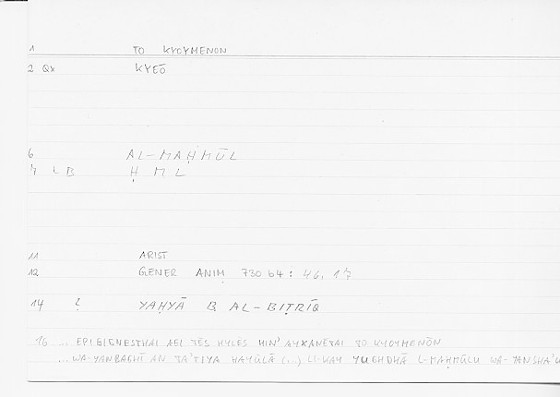 1 TO KYOYMENON
2 Qx KYEŌ
6 AL-MAḤMŪL
7 L B Ḥ M L
11 ARIST
12 GENER ANIM 730 b4: 46, 17
14 YAḤYĀ B AL-BIṬRĪQ
16 ... EPIGIGNESTHAI AEI TĒS HYLĒS HIN' AYXANĒTAI TO KYOYMENŌN
... WA-YANBAGHĪ AN TA'TIYA HAYŪLĀ (..) LI-KAY YUGHDHĀ L-MAḤMŪLU WA-TANSHA'U